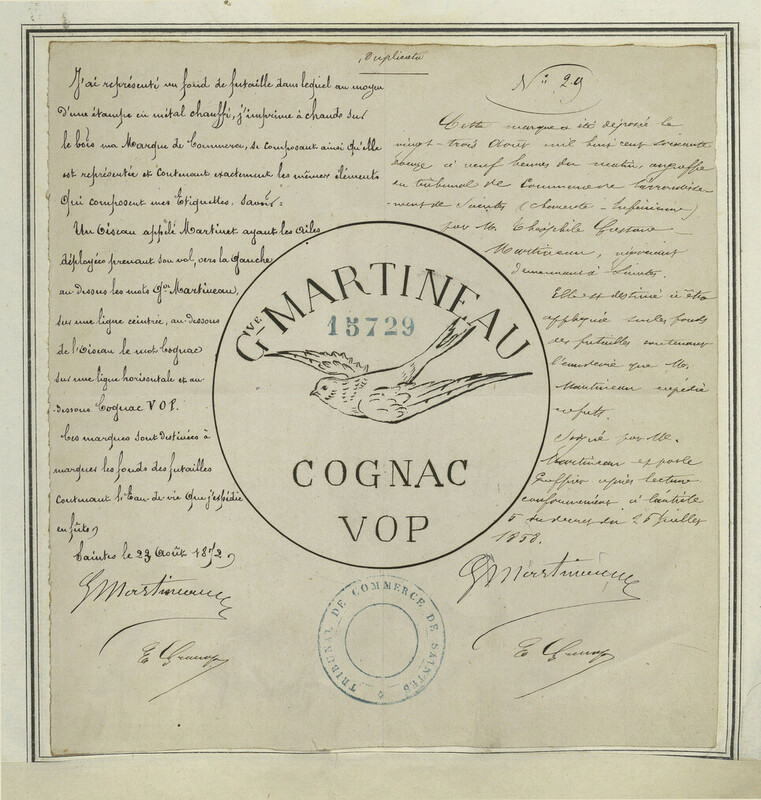 Duplicata
J'ai représenté un fond de futaille dans lequel au moyen
d'une étampe en métal chauffé, j'imprime à chaude sur
le bois ma Marque de Commerce, se composant ainsi qu'elle
est représentée et contenant exactement les mêmes éléments
qui composent mes Etiquettes, savoir :
Un Oiseau appelé Martinet ayant les ailes
déployées prenant son vol, vers la gauche
au dessous les mots Gve Martineau,
sur une ligne ceintrée, au dessous
de l'Oiseau le mot Cognac
sur une ligne horisontale et au
dessous Cognac VOP.
Ces marques sont destinées à
marquer les fonds des futailles
contenant l'Eau-de-vie que j'expédie
en fûts,
Saintes le 23 Août 1872,
G Martineau
Nº 29
Cette marque a été déposée le
vingt-trois Août mil huit cent soixante
douze à neuf heures du matin, au greffe
du tribunal de Commerce de l'arrondisse-
ment de Saintes (Charente-Inférieure)
par M. Théophile Gustave
Martineau, négociant
demeurant à Saintes.
Elle est destinée à être
appliquée sur les fonds
des futailles contenant
l'eau de vie que M.
Martineau expédie
en fûts.
Signé par M.
Martineau et par le
Greffier après lecture
conformément à l'article
5 du décret du 26 Juillet
1858.
G Martineau
Gve MARTINEAU
15729
COGNAC
VOP
TRIBUNAL DE COMMERCE DE SAINTES